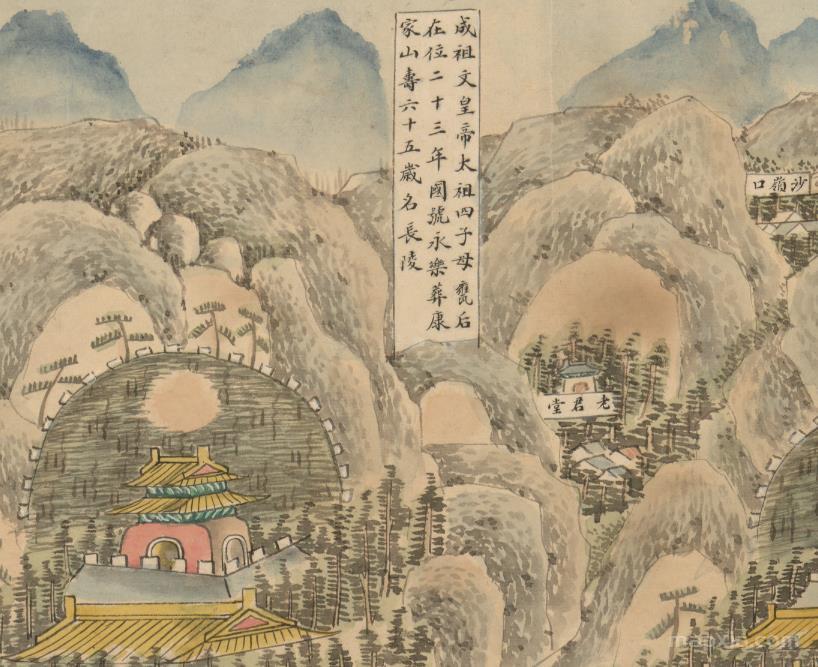 成祖文皇帝太祖四子母甕后
在位二十三年國號永樂葬康
家山壽六十五歲名長陵
沙嶺口
老君堂